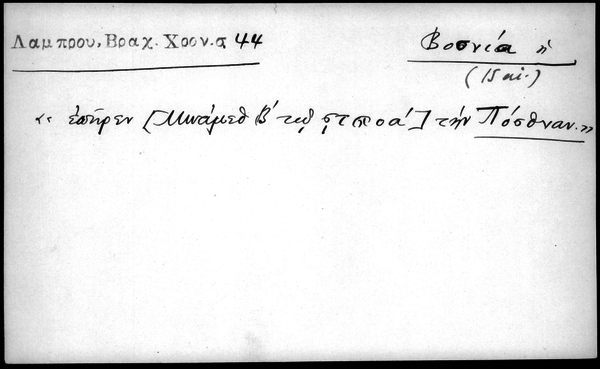 Λαμπρου, Βραχ. Χρον. σ 44
Βοσνία ἡ
(15 αἰ.)
« ἐπῆρεν [Μωάμεθ Β´ τῷ ͵ϛτποα´] τὴν Πόσθναν. »